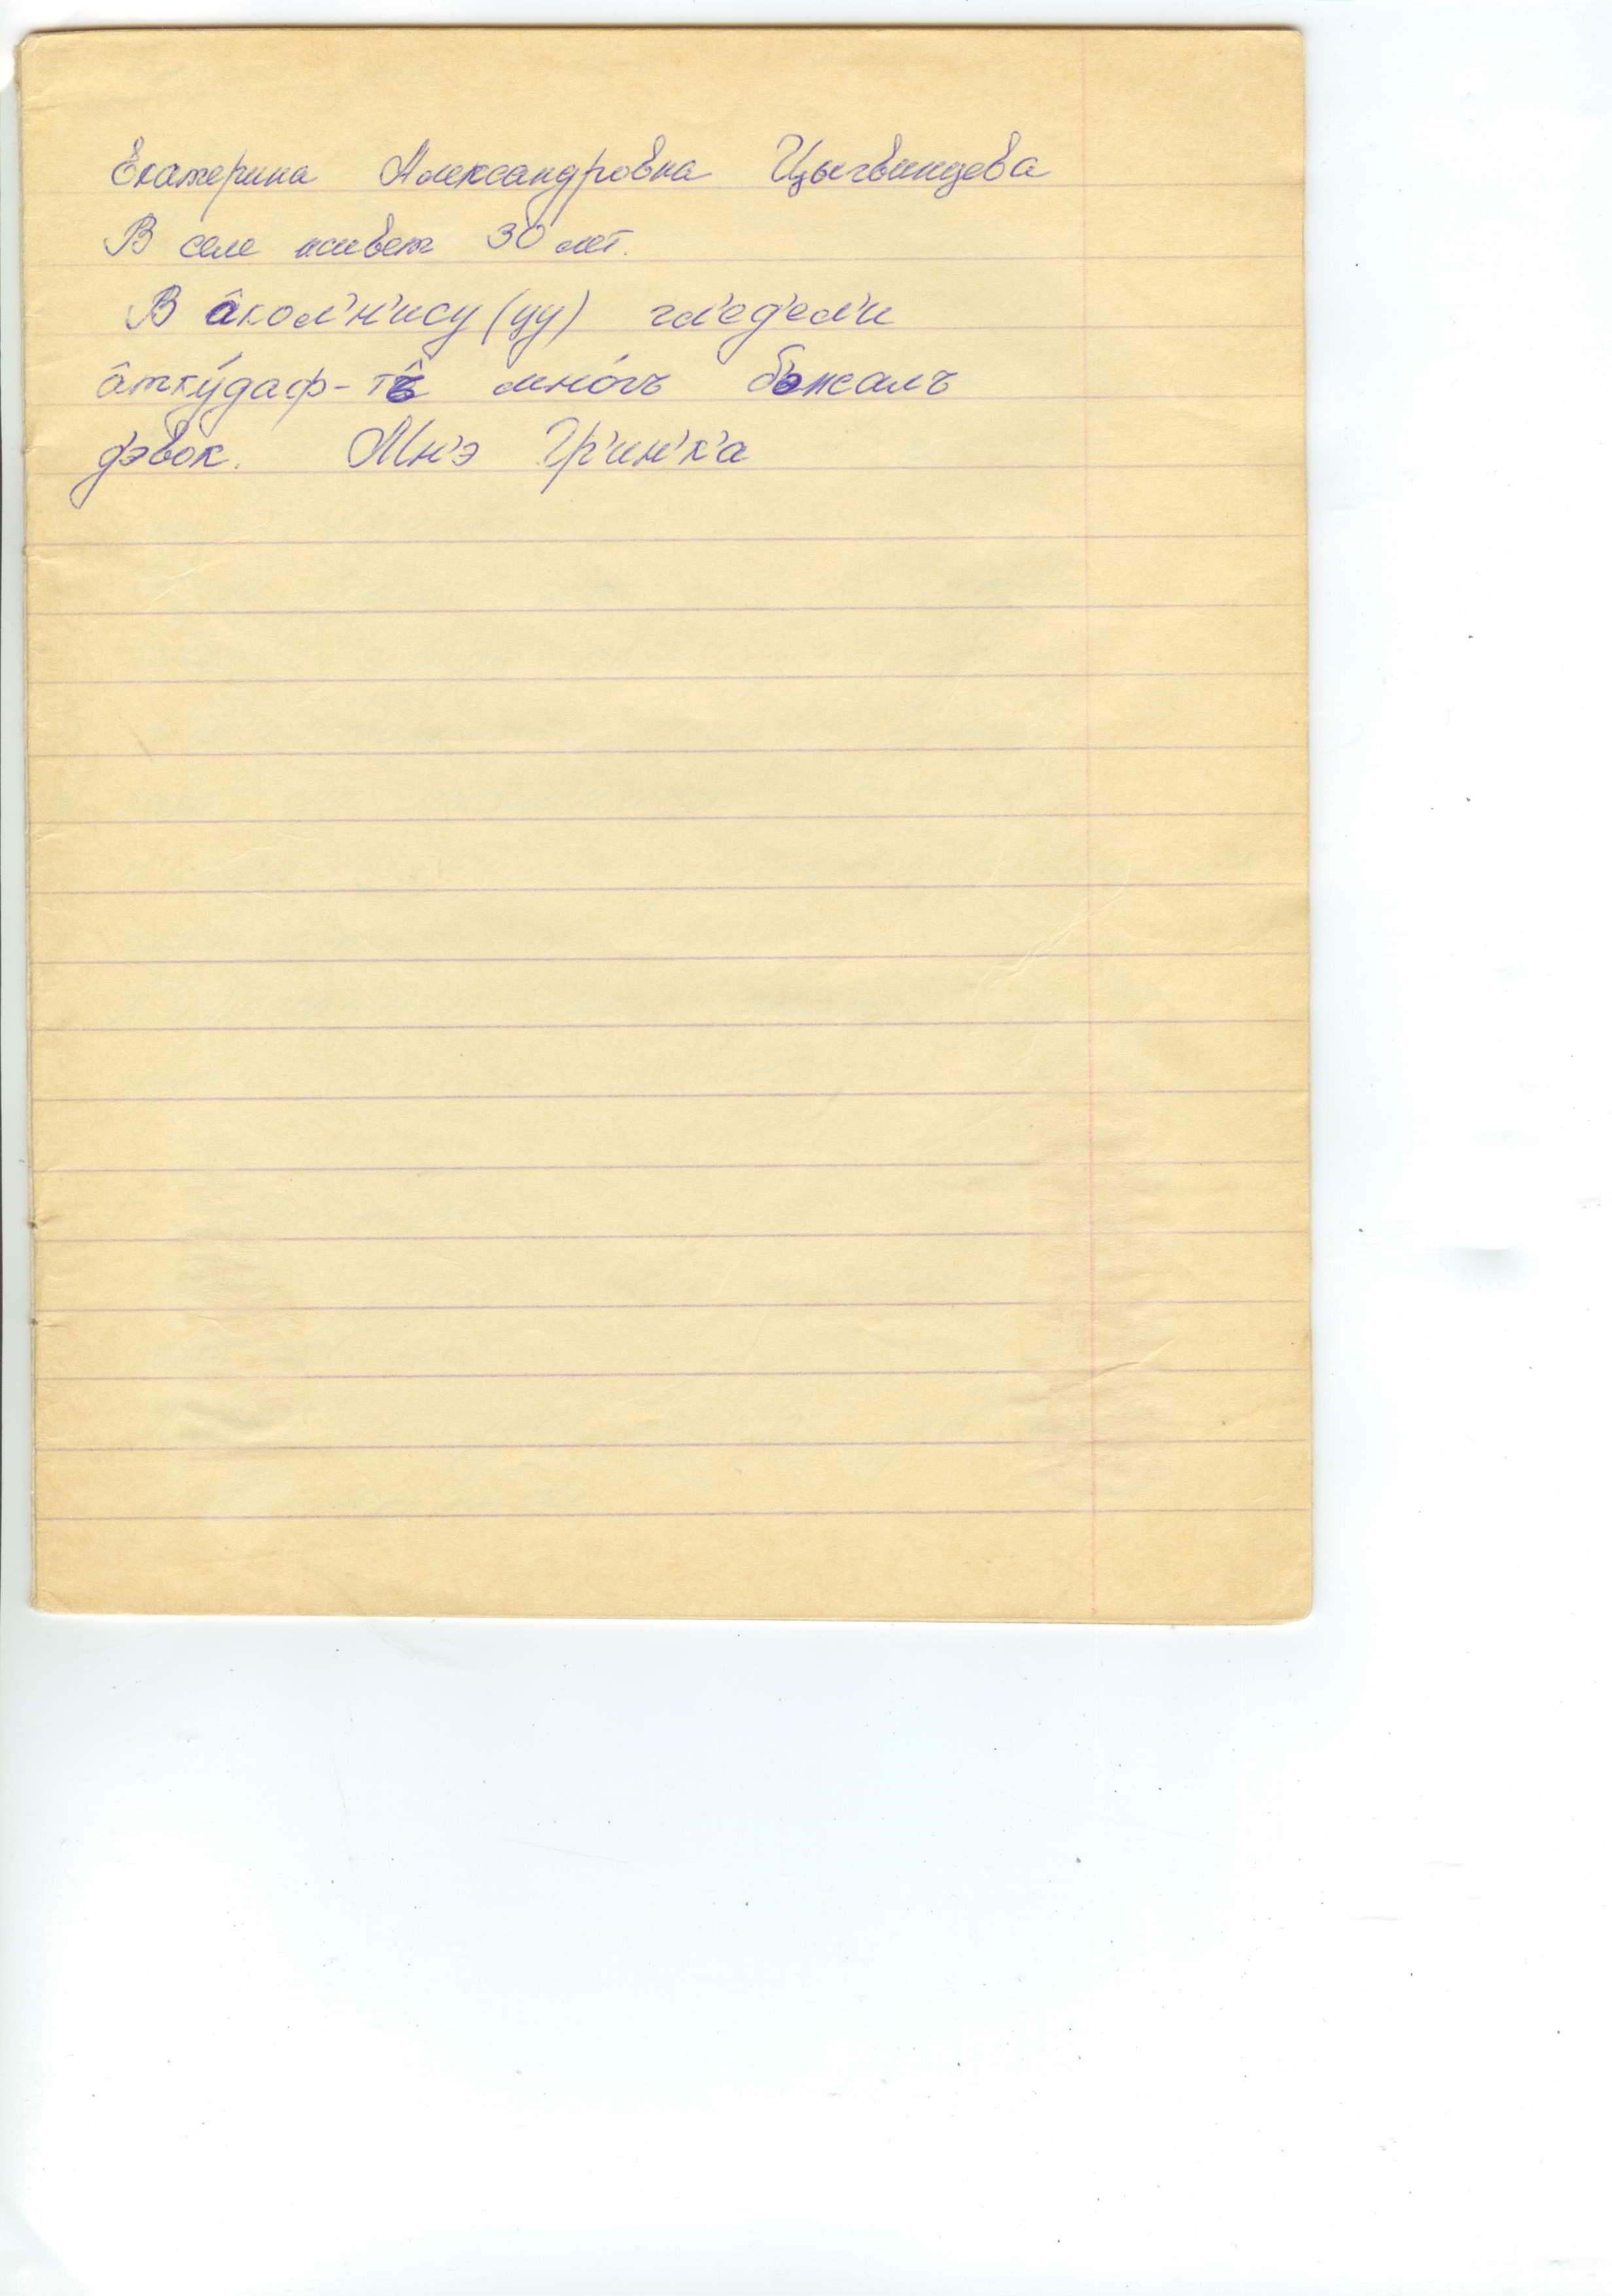 Екатерина Александровна Цыгвинцева
В селе живет 30 лет.
В а̂кол'н'ису (цу) гл'ед'ел'и
а̂тку́даф-тъ̂ мно́гъ бэжалъ
д'эвок. Мн'э Гр'ин'к'а